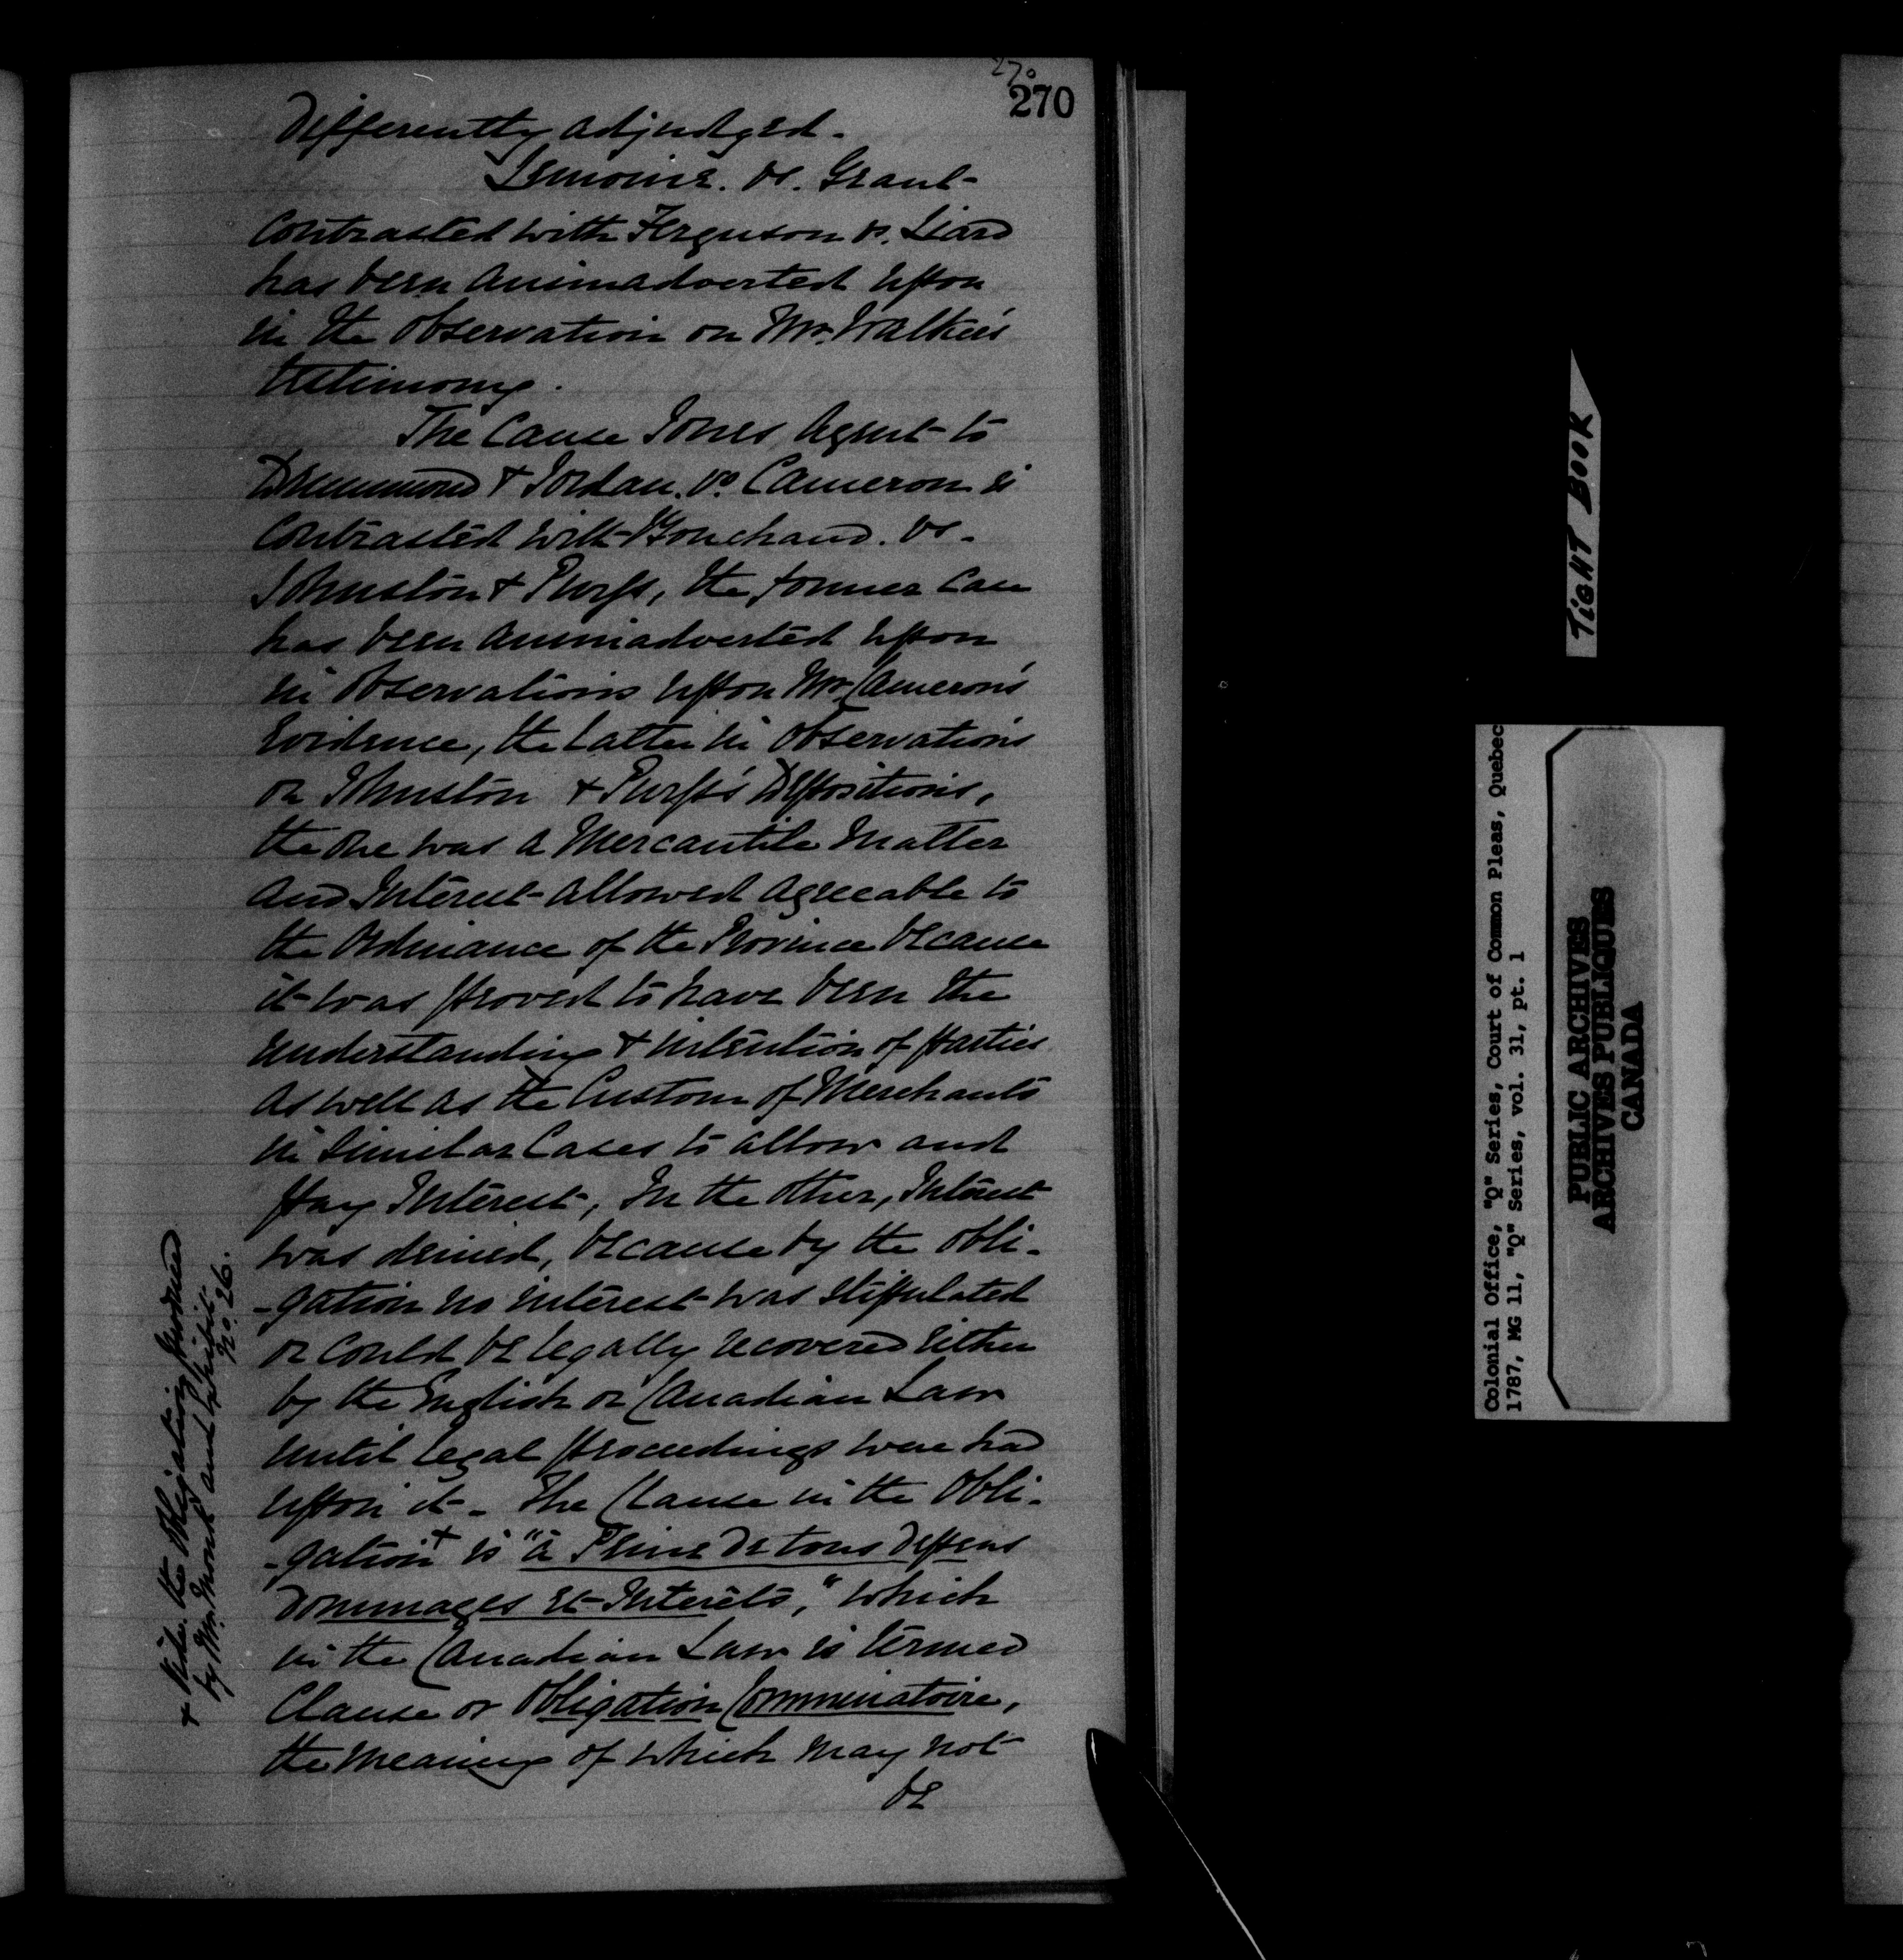 270
270
differently adjudged.
Lemoine. vs. Grant
Contrasted with Ferguson vs. Liard
has been animadverted upon
in the observation on Mr. Walker's
testimony.
The Cause Jones Agent to
Drummond & Jordan. vs. Cameron is
Contrasted with Bouchaud. vs.
Johnston & Purss, the former Case
has been animadverted upon
in Observations upon Mr. Cameron's
Evidence, the Latter in Observations
on Johnston & Purss's Depositions,
the one was a Mercantile Matter
and Interest allowed agreeable to
the Ordinance of the Province because
it was proved to have been the
understanding & intention of parties
as well as the Custom of Merchants
in Similar Cases to allow and
pay Interest, In the other, Interest
was denied, because by the obli-
-gation no interest was stipulated
or could be legally recovered either
by the English or Canadian Law
until legal proceedings were had
upon it. The Clause in the Obli-
-gation + is "à Peine de tous depens
dommages et Interêts," which
in the Canadian Law is termed
Clause or Obligation Comminatoire,
the meaning of which may not
be
+ Vide. the Obligation produced
by Mr. Monk and Exhibit
No. 26.
TIGHT BOOK
Colonial Office, "Q" Series, Court of Common Pleas, Quebec
1787, MG 11, "Q" Series, vol. 31, pt. 1
PUBLIC ARCHIVES
ARCHIVES PUBLIQUES
CANADA